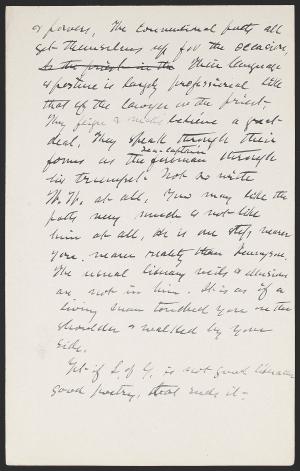 & powers, The conventional poets all
get themselves up for the occasion,
Their language
& posture is largely professional like
that of the lawyer or the priest.
They feign & make believe a great
deal. They speak through their
forms as the sea-captain through
his trumpet. Not so with
W. W. at all. You may like the
poets very much & not like
him at all, he is one step nearer
you. nearer reality than Tennyson.
The usual literary veils & illusions
are not in him. It is as if a
living man touched you on the
shoulder & walked by your
side.
Yet if L. of G. is not good literature
good poetry, that ends it.